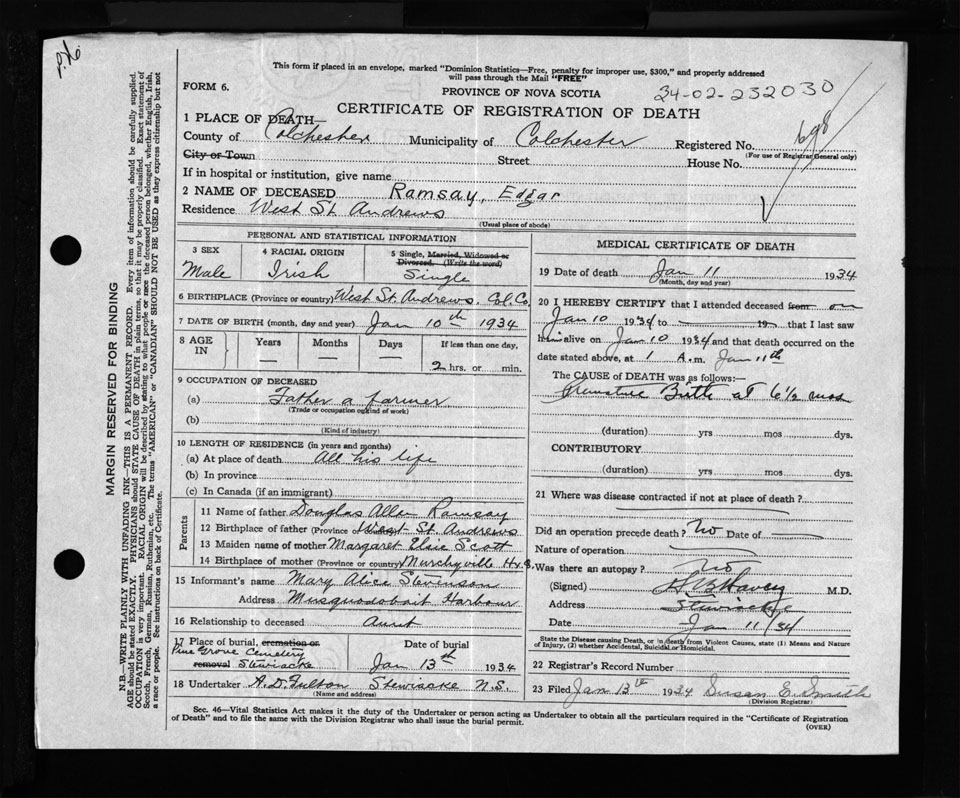 This form if placed in an envelope, marked "Dominion Statistics—Free, penalty for improper use, $300," and properly addressed
will pass through the Mail "FREE"
FORM 6.
PROVINCE OF NOVA SCOTIA
34-02-232030
CERTIFICATE OF REGISTRATION OF DEATH
698
1 PLACE OF DEATH—
County of Colchester Municipality of Colchester Registered No.
(For use of Registrar General only)
City or Town Street House No.
If in hospital or institution, give name
2 NAME OF DECEASED Ramsay, Edgar
Residence West St. Andrews
(Usual place of abode)
PERSONAL AND STATISTICAL INFORMATION
3 SEX
Male
4 RACIAL ORIGIN
Irish
5 Single, Married, Widowed or
Divorced. (Write the word)
Single
6 BIRTHPLACE (Province or country) West St. Andrews, Col. Co.
7 DATE OF BIRTH (month, day and year) Jan 10th 1934
8 AGE
IN
Years
—
Months
—
Days
—
If less than one day,
2 hrs. or min.
9 OCCUPATION OF DECEASED
(a) Father a farmer
(Trade or occupation or kind of work)
(b)
(Kind of industry)
10 LENGTH OF RESIDENCE (in years and months)
(a) At place of death All his life
(b) In province
(c) In Canada (if an immigrant)
Parents
11 Name of father Douglas Allen Ramsay
12 Birthplace of father (Province or country) West St. Andrews
13 Maiden name of mother Margaret Elsie Scott
14 Birthplace of mother (Province or country) Murchyville Hx
15 Informant's name Mary Alice Stevenson
Address Musquodoboit Harbour
16 Relationship to deceased Aunt
17 Place of burial, cremation or
removal
Pine Grove Cemetery
Stewiacke
Date of burial
Jan 13th 1934
18 Undertaker A. D. Fulton Stewiacke N.S.
(Name and address)
MEDICAL CERTIFICATE OF DEATH
19 Date of death Jan 11 1934
(Month, day and year)
20 I HEREBY CERTIFY that I attended deceased from on
Jan 10 1934 to 19 that I last saw
him alive on Jan 10 1934 and that death occurred on the
date stated above, at 1 A.m. Jan 11th
The CAUSE of DEATH was as follows:—
Premature Birth at 6½ mos
(duration) yrs mos dys.
CONTRIBUTORY
(duration) yrs mos dys.
21 Where was disease contracted if not at place of death?
Did an operation precede death? No Date of —
Nature of operation
Was there an autopsy? No
(Signed) M.D.
Address Stewiacke
Date Jan 11/34
State the Disease causing Death, or in death from Violent Causes, state (1) Means and
Nature of Injury, (2) whether Accidental, Suicidal or Homicidal.
22 Registrar's Record Number
23 Filed Jan 13th 1934 Susan E. Smith
(Division Registrar)
Sec. 46—Vital Statistics Act makes it the duty of the Undertaker or person acting as Undertaker to obtain all the particulars required in the "Certificate of Registration
of Death" and to file the same with the Division Registrar who shall issue the burial permit.
(OVER)
MARGIN RESERVED FOR BINDING
N.B.—WRITE PLAINLY WITH UNFADING INK—THIS IS A PERMANENT RECORD. Every item of information should be carefully supplied.
AGE should be stated EXACTLY. PHYSICIANS should STATE CAUSE OF DEATH in plain terms, so that it may be properly classified. Exact statement of
OCCUPATION is very important. RACIAL ORIGIN will be described by stating to what people or race the deceased person belonged, whether English, Irish,
Scotch, French, German, Russian, Ruthenian, etc. The terms "AMERICAN" or "CANADIAN" SHOULD NOT BE USED as they express citizenship but not
a race or people. See instructions on back of Certificate.